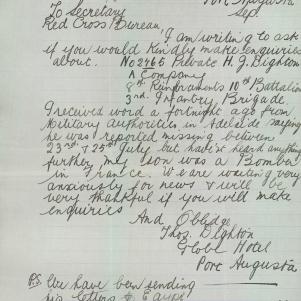 Port Augusta
Sep
To Secretary
Red Cross Bureau,
I am writing to ask
if you would kindly make enquiries
about. No 2466 Private H. J. Dighton
A Company
8th Reinforcements 10th Battalion
3rd Infantry Brigade.
I received word a fortnight ago from
Military authorities in Adelaide saying
he was reported missing between
23rd & 25th July but have'nt heard anything
further, my son was a Bomber
in France. We are waiting very
anxiously for news & will be
very thankful if you will make
enquiries
And Oblidge
Thos. Dighton
Globe Hotel
Port Augusta
P.S. We have been sending
his letters to Egypt